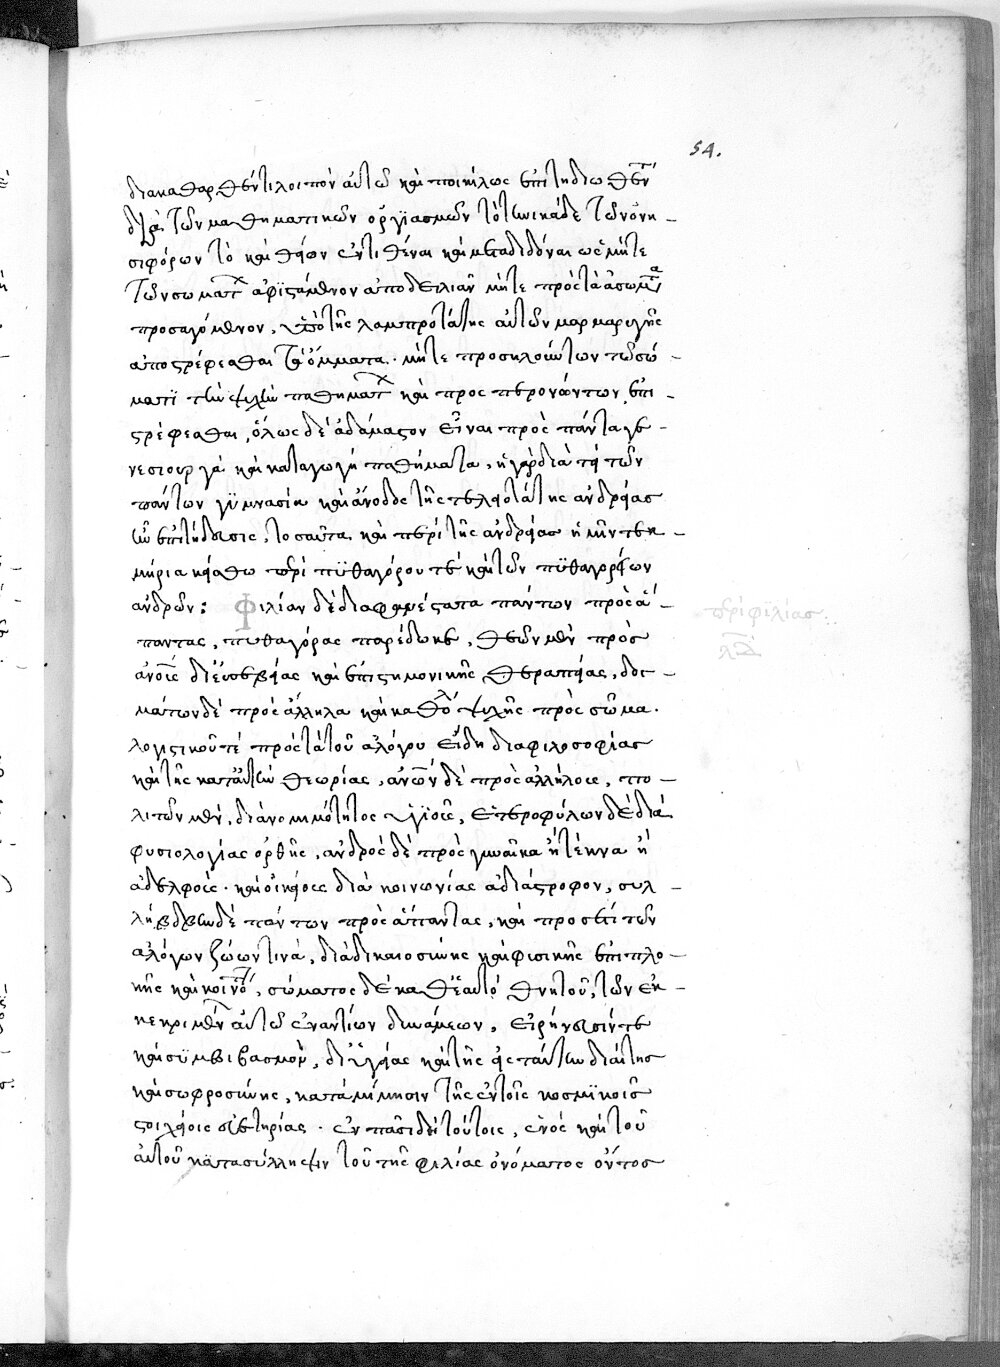 54.
διακαθαρθέντι λοιπὸν αὐτῶ καὶ ποικίλως ἐπιτηδειωθέντι
διὰ τῶν μαθηματικῶν ὀργϊασμῶν τὸ τηνικάδε τῶν ὀνη-
σιφόρων τὸ καὶ θείων ἐντιθέναι καὶ μεταδιδόναι ὡς μήτε
τῶν σωμάτων ἀφϊστάμενον ἀποδειλιᾶν μήτε πρὸς τὰ ἀσώματα
προσαγόμενον, ὑπὸ τῆς λαμπροτάτης αὐτῶν μαρμαρυγῆς
ἀποστρέφεσθαι τὰ ὄμματα. μήτε προσηλούντων τῶ σώ-
ματϊ τὴν ψυχὴν παθημάτων καὶ προσπερονώντων ἐπι-
στρέφεσθαι, ὅλως δὲ ἀδάμαστον εἶναι πρὸς πάντα γε-
νεσιουργὰ καὶ καταγωγὴ παθήματα, ἡ γὰρ διὰ τῶν
πάντων γϋμνασία καὶ ἄνοδος τῆς τελειοτάτης ἀνδρείας
ἦν ἐπιτήδευσις, τοσαῦτα καὶ περὶ τῆς ἀνδρείας ἡμῖν τεκ-
μήρια κείσθω περὶ πϋθαγόρου τὲ καὶ τῶν πϋθαγορείων
ἀνδρῶν:
Φιλίαν δὲ διαφανέστατα πάντων πρὸς ἅ-
παντας, πυθαγόρας παρέδωκε, θεῶν μὲν πρὸς
ἀνους δι' εὐσεβείας καὶ ἐπιστημονικῆς θεραπείας, δογ-
μάτων δὲ πρὸς ἄλληλα καὶ καθόλου ψυχῆς πρὸς σῶμα.
λογιστικοῦ τὲ πρὸς τὰ τοῦ ἀλόγου εἴδη διαφιλοσοφίας
καὶ τῆς κατ' αὐτὴν θεωρίας, ἀνων δὲ πρὸς ἀλλήλους, πο-
λιτῶν μὲν, διὰ νομιμότητος ὑγϊοῦς, ἑτεροφύλων δὲ διὰ
φυσιολογίας ὀρθῆς, ἀνδρὸς δὲ πρὸς γυναῖκα ἢ τέκνα ἢ
ἀδελφοὺς. καὶ οἰκείους διὰ κοινωνίας ἀδιάστροφον, συλ-
λήβδην δὲ πάντων πρὸς ἅπαντας, καὶ προσέτι τῶν
ἀλόγων ζώων τινὰ, διὰ δικαιοσύνης καὶ φισικῆς ἐπιπλο-
κῆς καὶ κοινότητος, σώματος δὲ καθ' ἑαυτὸ θνητοῦ, τῶν ἐκ-
κεκριμένων αὐτῶ ἐναντίων δυνάμεων, εἰρήνευσίν τε
καὶ σϋμβιβασμὸν, δι' ὑγείας καὶ τῆς εἰς ταύτην διαίτης
καὶ σωφροσύνης, κατὰ μίμησιν τῆς ἐν τοῖς κοσμϊκοῖς
στοιχείοις εὐετηρίας. ἐν πᾶσι δὲ τούτοις, ἑνὸς καὶ τοῦ
αὐτοῦ κατασύλληψιν τοῦ τῆς φιλίας ὀνόματος ὄντος
περὶ φϊλίας